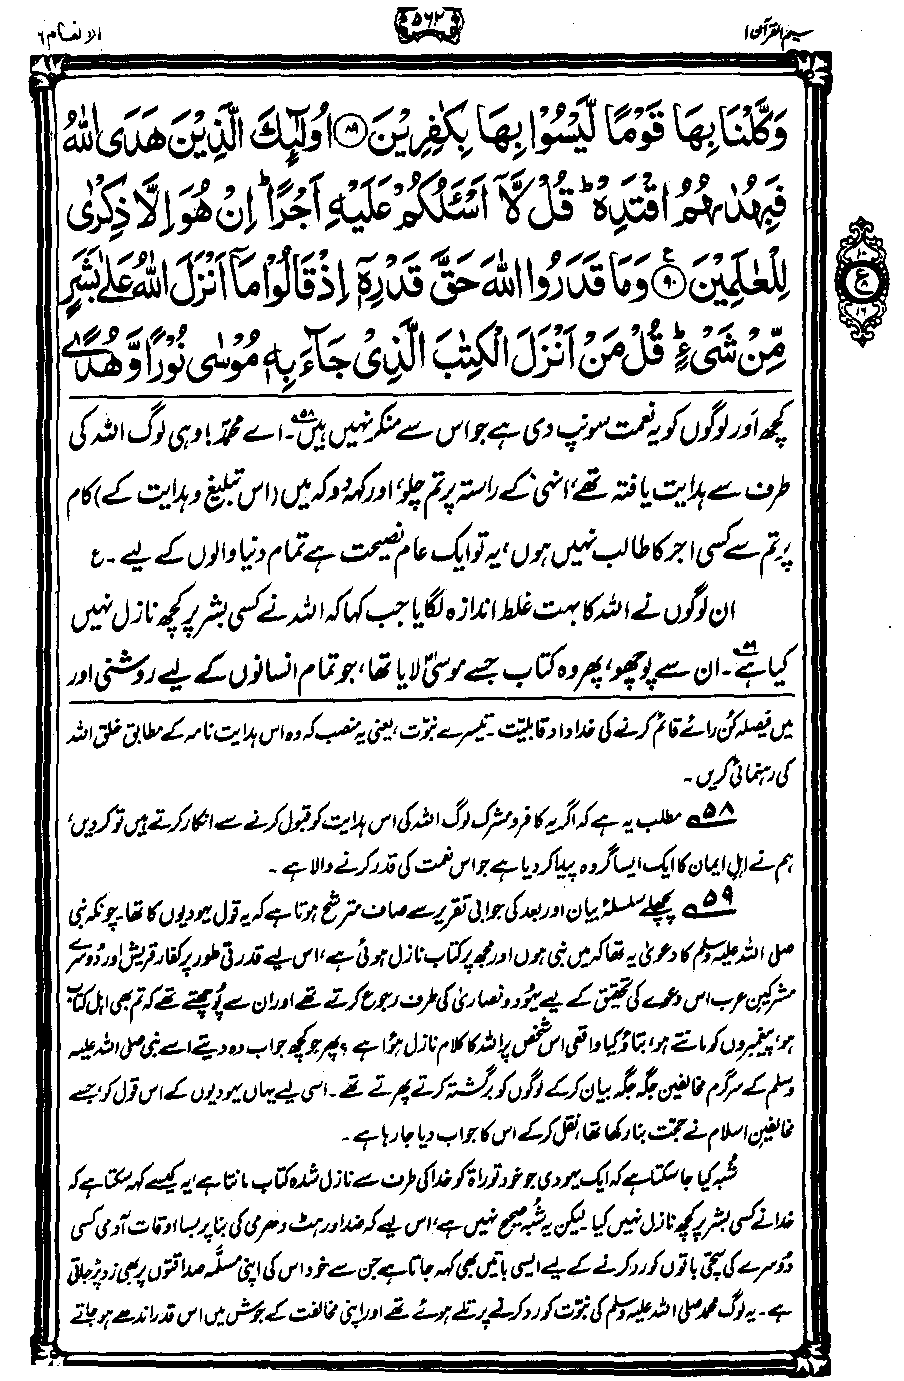 الانعام ٦
۵۶۲
تفہیم القرآن ا
وَكَّلْنَا بِهَا قَوْمًا لَّيْسُوْا بِهَا بِكٰفِرِيْنَ ﴿۸۹﴾ اُولٰٓئِكَ الَّذِيْنَ هَدَى اللّٰهُ
فَبِهُدٰىهُمُ اقْتَدِهْ ؕ قُلْ لَّاۤ اَسْـَٔلُكُمْ عَلَيْهِ اَجْرًا ؕ اِنْ هُوَ اِلَّا ذِكْرٰى
لِلْعٰلَمِيْنَ ﴿۹۰﴾ ع وَمَا قَدَرُوا اللّٰهَ حَقَّ قَدْرِهٖۤ اِذْ قَالُوْا مَاۤ اَنْزَلَ اللّٰهُ عَلٰى بَشَرٍ
مِّنْ شَيْءٍ ؕ قُلْ مَنْ اَنْزَلَ الْكِتٰبَ الَّذِيْ جَآءَ بِهٖ مُوْسٰى نُوْرًا وَّهُدًى
۱۰
ع
۸
۱۶
کچھ اور لوگوں کو یہ نعمت سونپ دی ہے جو اس سے منکر نہیں ہیں۵۸۔ اے محمدؐ! وہی لوگ اللہ کی
طرف سے ہدایت یافتہ تھے، انہی کے راستہ پر تم چلو، اور کہہ دو کہ میں (اس تبلیغ و ہدایت کے) کام
پر تم سے کسی اجر کا طالب نہیں ہوں، یہ تو ایک عام نصیحت ہے تمام دنیا والوں کے لیے۔ ع
ان لوگوں نے اللہ کا بہت غلط اندازہ لگایا جب کہا کہ اللہ نے کسی بشر پر کچھ نازل نہیں
کیا ہے۵۹۔ ان سے پوچھو، پھر وہ کتاب جسے موسیٰؑ لایا تھا، جو تمام انسانوں کے لیے روشنی اور
میں فیصلہ کُن رائے قائم کرنے کی خداداد قابلیت۔ تیسرے نبوّت، یعنی یہ منصب کہ وہ اس ہدایت نامہ کے مطابق خلق اللہ
کی رہنمائی کریں۔
۵۸ مطلب یہ ہے کہ اگر یہ کافر و مشرک لوگ اللہ کی اس ہدایت کو قبول کرنے سے انکار کرتے ہیں تو کر دیں،
ہم نے اہلِ ایمان کا ایک ایسا گروہ پیدا کر دیا ہے جو اس نعمت کی قدر کرنے والا ہے۔
۵۹ پچھلے سلسلۂ بیان اور بعد کی جوابی تقریر سے صاف مترشح ہوتا ہے کہ یہ قول یہودیوں کا تھا۔ چونکہ نبی
صلی اللہ علیہ وسلم کا دعویٰ یہ تھا کہ میں نبی ہوں اور مجھ پر کتاب نازل ہوئی ہے، اس لیے قدرتی طور پر کفارِ قریش اور دُوسرے
مشرکینِ عرب اس دعوے کی تحقیق کے لیے یہود و نصاریٰ کی طرف رجوع کرتے تھے اور ان سے پُوچھتے تھے کہ تم بھی اہلِ کتاب
ہو، پیغمبروں کو مانتے ہو، بتاؤ کیا واقعی اس شخص پر اللہ کا کلام نازل ہوٴا ہے؟ پھر جو کچھ جواب وہ دیتے اسے نبی صلی اللہ علیہ
وسلم کے سرگرم مخالفین جگہ جگہ بیان کر کے لوگوں کو برگشتہ کرتے پھرتے تھے۔ اسی لیے یہاں یہودیوں کے اس قول کو، جسے
مخالفینِ اسلام نے حجت بنا رکھا تھا، نقل کر کے اس کا جواب دیا جا رہا ہے۔
شُبہ کیا جا سکتا ہے کہ ایک یہودی جو خود توراۃ کو خدا کی طرف سے نازل شدہ کتاب مانتا ہے، یہ کیسے کہہ سکتا ہے کہ
خدا نے کسی بشر پر کچھ نازل نہیں کیا۔ لیکن یہ شبہ صحیح نہیں ہے، اس لیے کہ ضد اور ہٹ دھرمی کی بنا پر بسا اوقات آدمی کسی
دُوسرے کی سچی باتوں کو رد کرنے کے لیے ایسی باتیں بھی کہہ جاتا ہے جن سے خود اس کی اپنی مسلّمہ صداقتوں پر بھی زد پڑ جاتی
ہے۔ یہ لوگ محمد صلی اللہ علیہ وسلم کی نبوّت کو رد کرنے پر تلے ہوئے تھے اور اپنی مخالفت کے جوش میں اس قدر اندھے ہو جاتے